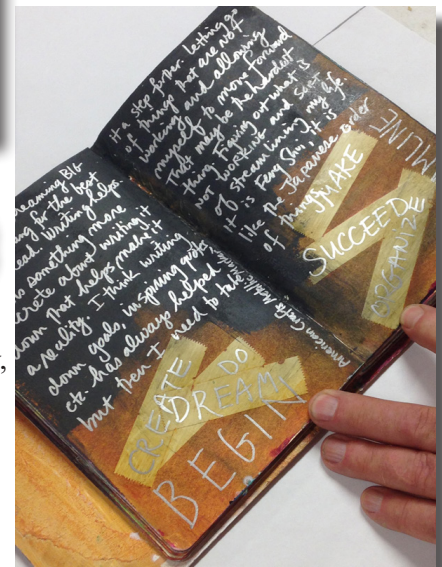 reaming BIG
ing for the best
ead. Writing helps
something more
crete about writing it
down that helps make it
a reality. I think writing
down goals, inspiring quotes,
etc. has always helped
but then I need to take
CREATE
DO
DREAM
BEGIN
American Crafts Metallic Marker
it a step further. letting go
of things that are not
working and allowing
myself to move forward
That may be the hardest
thing. Figuring out what is
not working and sort
of streamlining my life.
It is Feng Shui. It is
like the Japanese order
of things.
MAKE
SUCCEED
ORGANIZE
MLINE